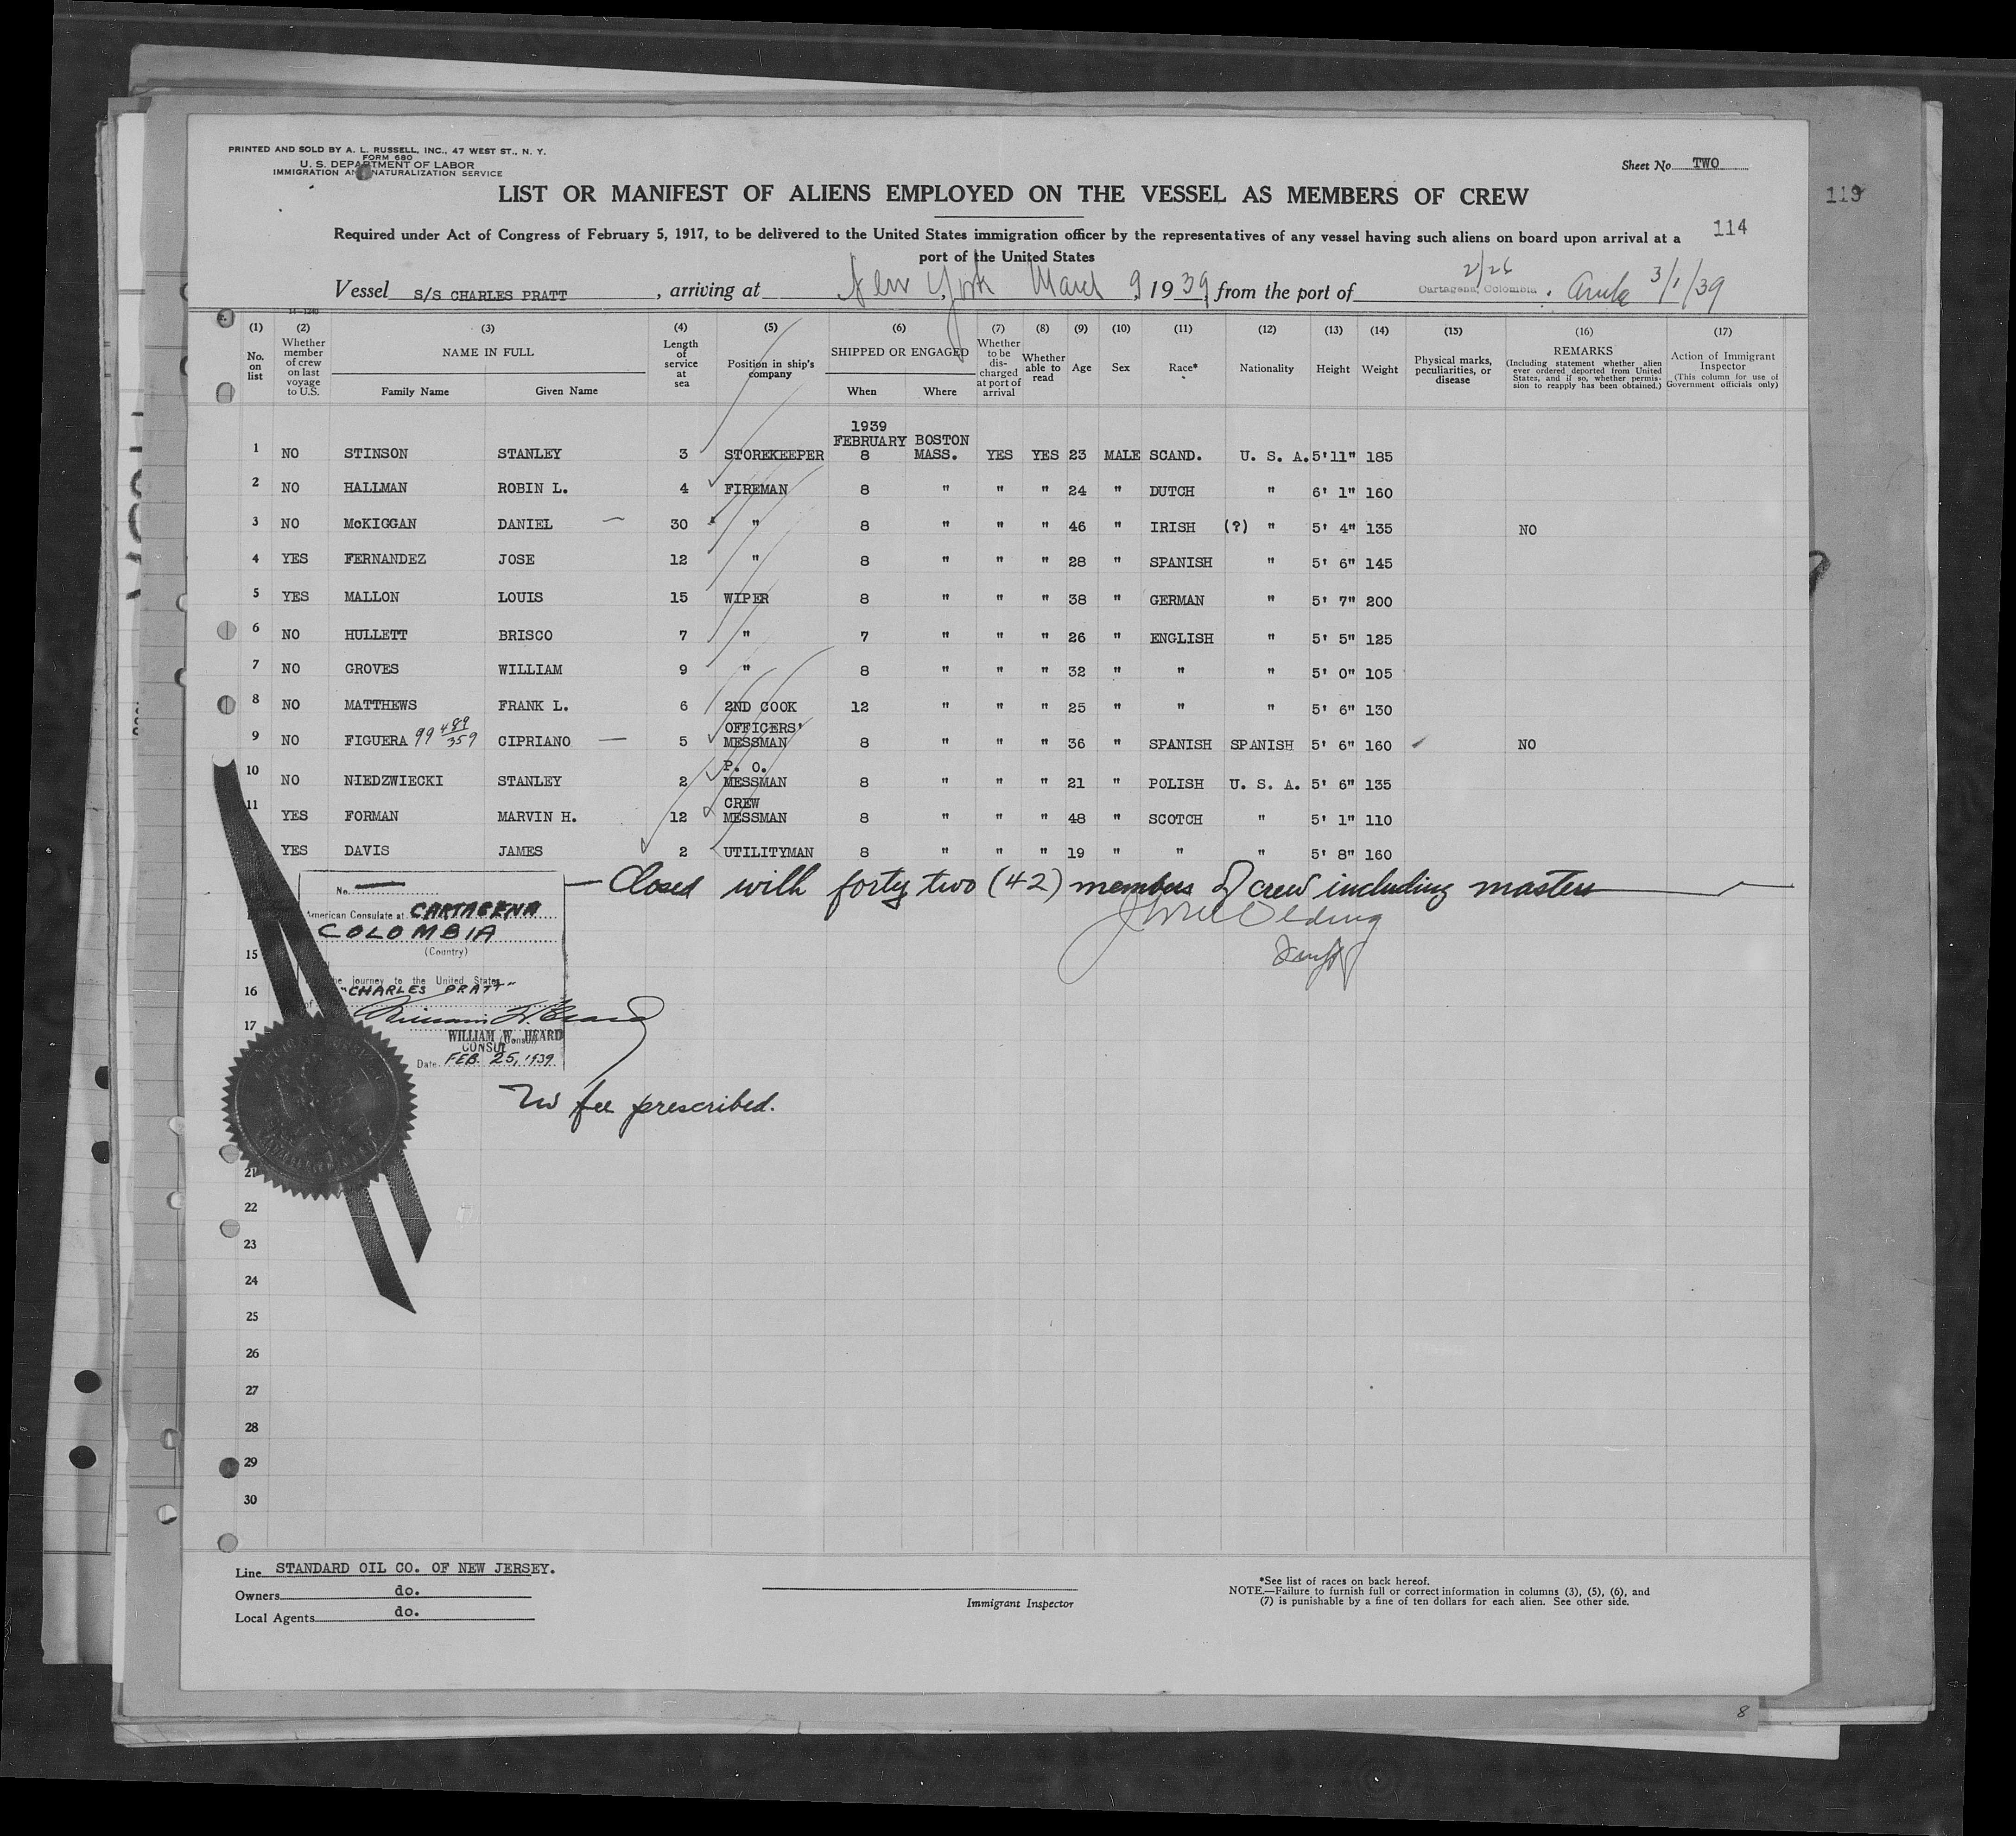 PRINTED AND SOLD BY A. L. RUSSELL, INC., 47 WEST ST., N. Y.
FORM 680
U. S. DEPARTMENT OF LABOR
IMMIGRATION AND NATURALIZATION SERVICE
Sheet No. TWO
LIST OR MANIFEST OF ALIENS EMPLOYED ON THE VESSEL AS MEMBERS OF CREW
119
114
Required under Act of Congress of February 5, 1917, to be delivered to the United States immigration officer by the representatives of any vessel having such aliens on board upon arrival at a
port of the United States
Vessel S/S CHARLES PRATT, arriving at New York March 9 1939, from the port of Cartagena, Colombia 2/26 . Aruba 3/1/39
14-1240
(1) (2) (3) (4) (5) (6) (7) (8) (9) (10) (11) (12) (13) (14) (15) (16) (17)
No. on list
Whether member of crew on last voyage to U.S.
NAME IN FULL
Family Name Given Name
Length of service at sea
Position in ship's company
SHIPPED OR ENGAGED
When Where
Whether to be discharged at port of arrival
Whether able to read
Age
Sex
Race*
Nationality
Height
Weight
Physical marks, peculiarities, or disease
REMARKS
(Including statement whether alien ever ordered deported from United States, and if so, whether permission to reapply has been obtained.)
Action of Immigrant Inspector
(This column for use of Government officials only)
1939
FEBRUARY BOSTON
1 NO STINSON STANLEY 3 STOREKEEPER 8 MASS. YES YES 23 MALE SCAND. U. S. A. 5'11" 185
2 NO HALLMAN ROBIN L. 4 FIREMAN 8 " " " 24 " DUTCH " 6' 1" 160
3 NO McKIGGAN DANIEL — 30 " 8 " " " 46 " IRISH (?) " 5' 4" 135 NO
4 YES FERNANDEZ JOSE 12 " 8 " " " 28 " SPANISH " 5' 6" 145
5 YES MALLON LOUIS 15 WIPER 8 " " " 38 " GERMAN " 5' 7" 200
6 NO HULLETT BRISCO 7 " 7 " " " 26 " ENGLISH " 5' 5" 125
7 NO GROVES WILLIAM 9 " 8 " " " 32 " " " 5' 0" 105
8 NO MATTHEWS FRANK L. 6 2ND COOK 12 " " " 25 " " " 5' 6" 130
9 NO FIGUERA 99 489/359 CIPRIANO — 5 OFFICERS' MESSMAN 8 " " " 36 " SPANISH SPANISH 5' 6" 160 NO
10 NO NIEDZWIECKI STANLEY 2 P. O. MESSMAN 8 " " " 21 " POLISH U. S. A. 5' 6" 135
11 YES FORMAN MARVIN H. 12 CREW MESSMAN 8 " " " 48 " SCOTCH " 5' 1" 110
YES DAVIS JAMES 2 UTILITYMAN 8 " " " 19 " " " 5' 8" 160
— Closed with forty two (42) members of crew including master
No.
American Consulate at CARTAGENA
COLOMBIA
(Country)
journey to the United States
of "CHARLES PRATT"
William W. Heard
WILLIAM W. HEARD
CONSUL
Date FEB. 25, 1939
No fee prescribed.
15
16
17
21
22
23
24
25
26
27
28
29
30
Line STANDARD OIL CO. OF NEW JERSEY.
Owners do.
Local Agents do.
Immigrant Inspector
*See list of races on back hereof.
NOTE.—Failure to furnish full or correct information in columns (3), (5), (6), and
(7) is punishable by a fine of ten dollars for each alien. See other side.
8